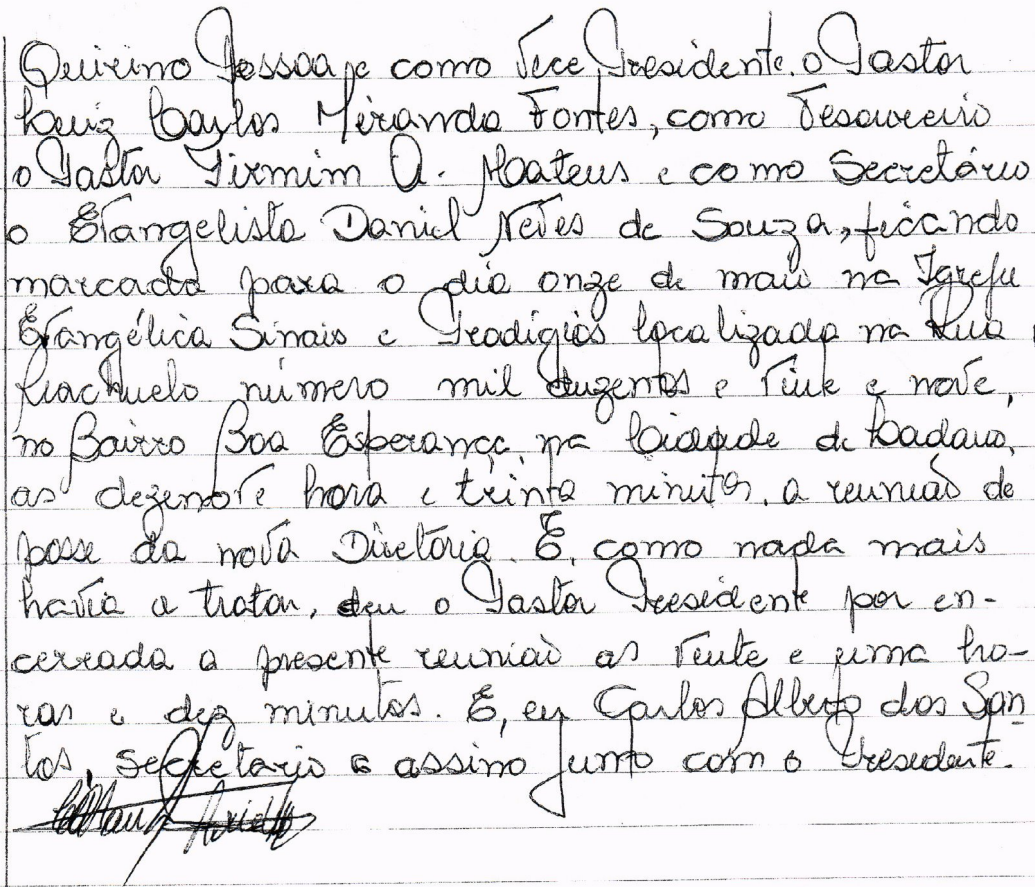 Quirino Pessoa, e como Vice Presidente. o Pastor
Luiz Carlos Miranda Fontes, como Tesoureiro
o Pastor Firmim A. Mateus e como Secretário
o Evangelista Daniel Neves de Souza, ficando
marcada para o dia onze de maio na Igreja
Evangélica Sinais e Prodígios localizada na Rua
Riachuelo número mil duzentos e vinte e nove,
no Bairro Boa Esperança, na Cidade de
as dezenove hora e trinta minutos, a reunião de
posse da nova Diretoria. E, como nada mais
havia a tratar, deu o Pastor Presidente por en-
cerrada a presente reunião as vinte e uma ho-
ras e dez minutos. E, eu Carlos Alberto dos San
tos, secretario e assino junto com o Presidente.